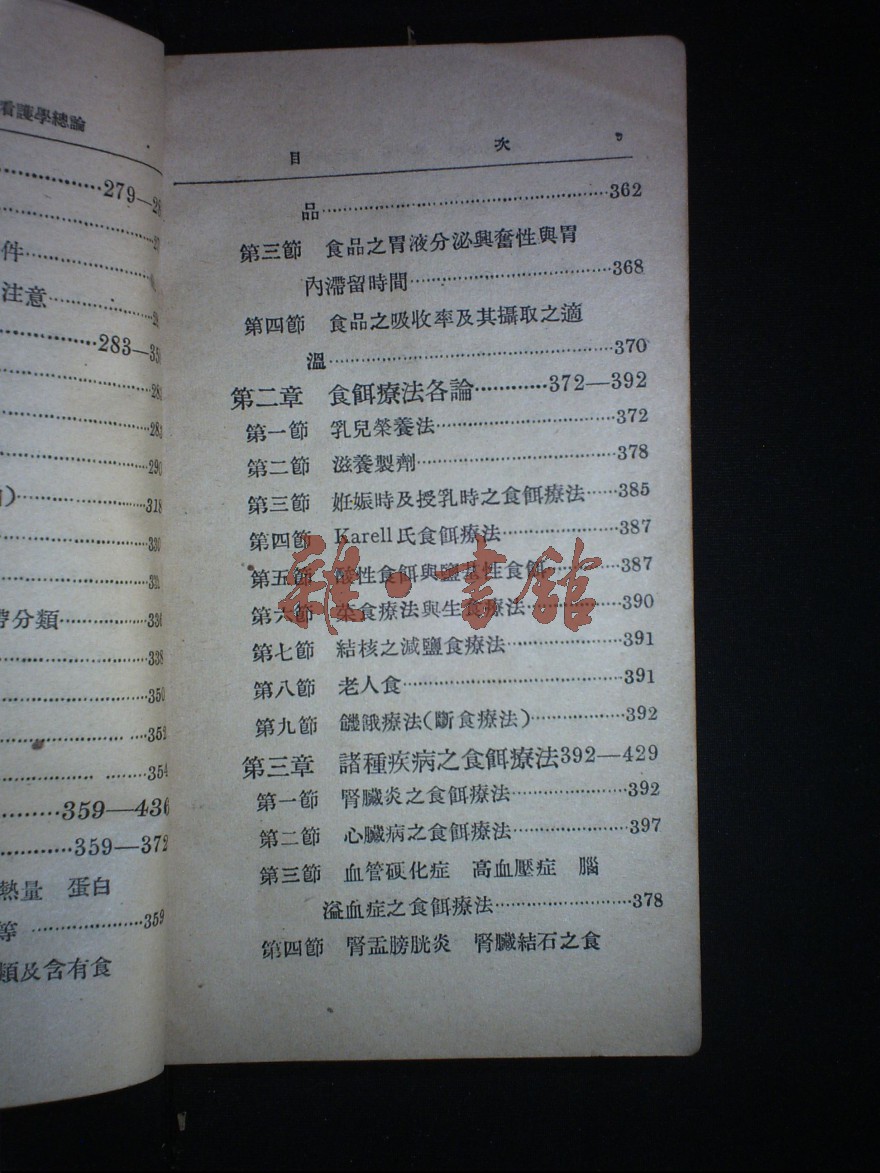 看護學總論
279—2
件
注意
283—35
290
318
帶分類………336
338
350
354
359—436
359—372
熱量 蛋白
等 ………359
類及含有食
目 次 9
品………362
第三節 食品之胃液分泌興奮性與胃
內滯留時間………368
第四節 食品之吸收率及其攝取之適
溫………370
第二章 食餌療法各論………372—392
第一節 乳兒榮養法………372
第二節 滋養製劑………378
第三節 妊娠時及授乳時之食餌療法……385
第四節 Karell氏食餌療法………387
第五節 酸性食餌與鹽基性食餌………387
第六節 菜食療法與生食療法………390
第七節 結核之減鹽食療法………391
第八節 老人食………391
第九節 饑餓療法(斷食療法)………392
第三章 諸種疾病之食餌療法392—429
第一節 腎臟炎之食餌療法………392
第二節 心臟病之食餌療法………397
第三節 血管硬化症 高血壓症 腦
溢血症之食餌療法………378
第四節 腎盂膀胱炎 腎臟結石之食
雜·書館